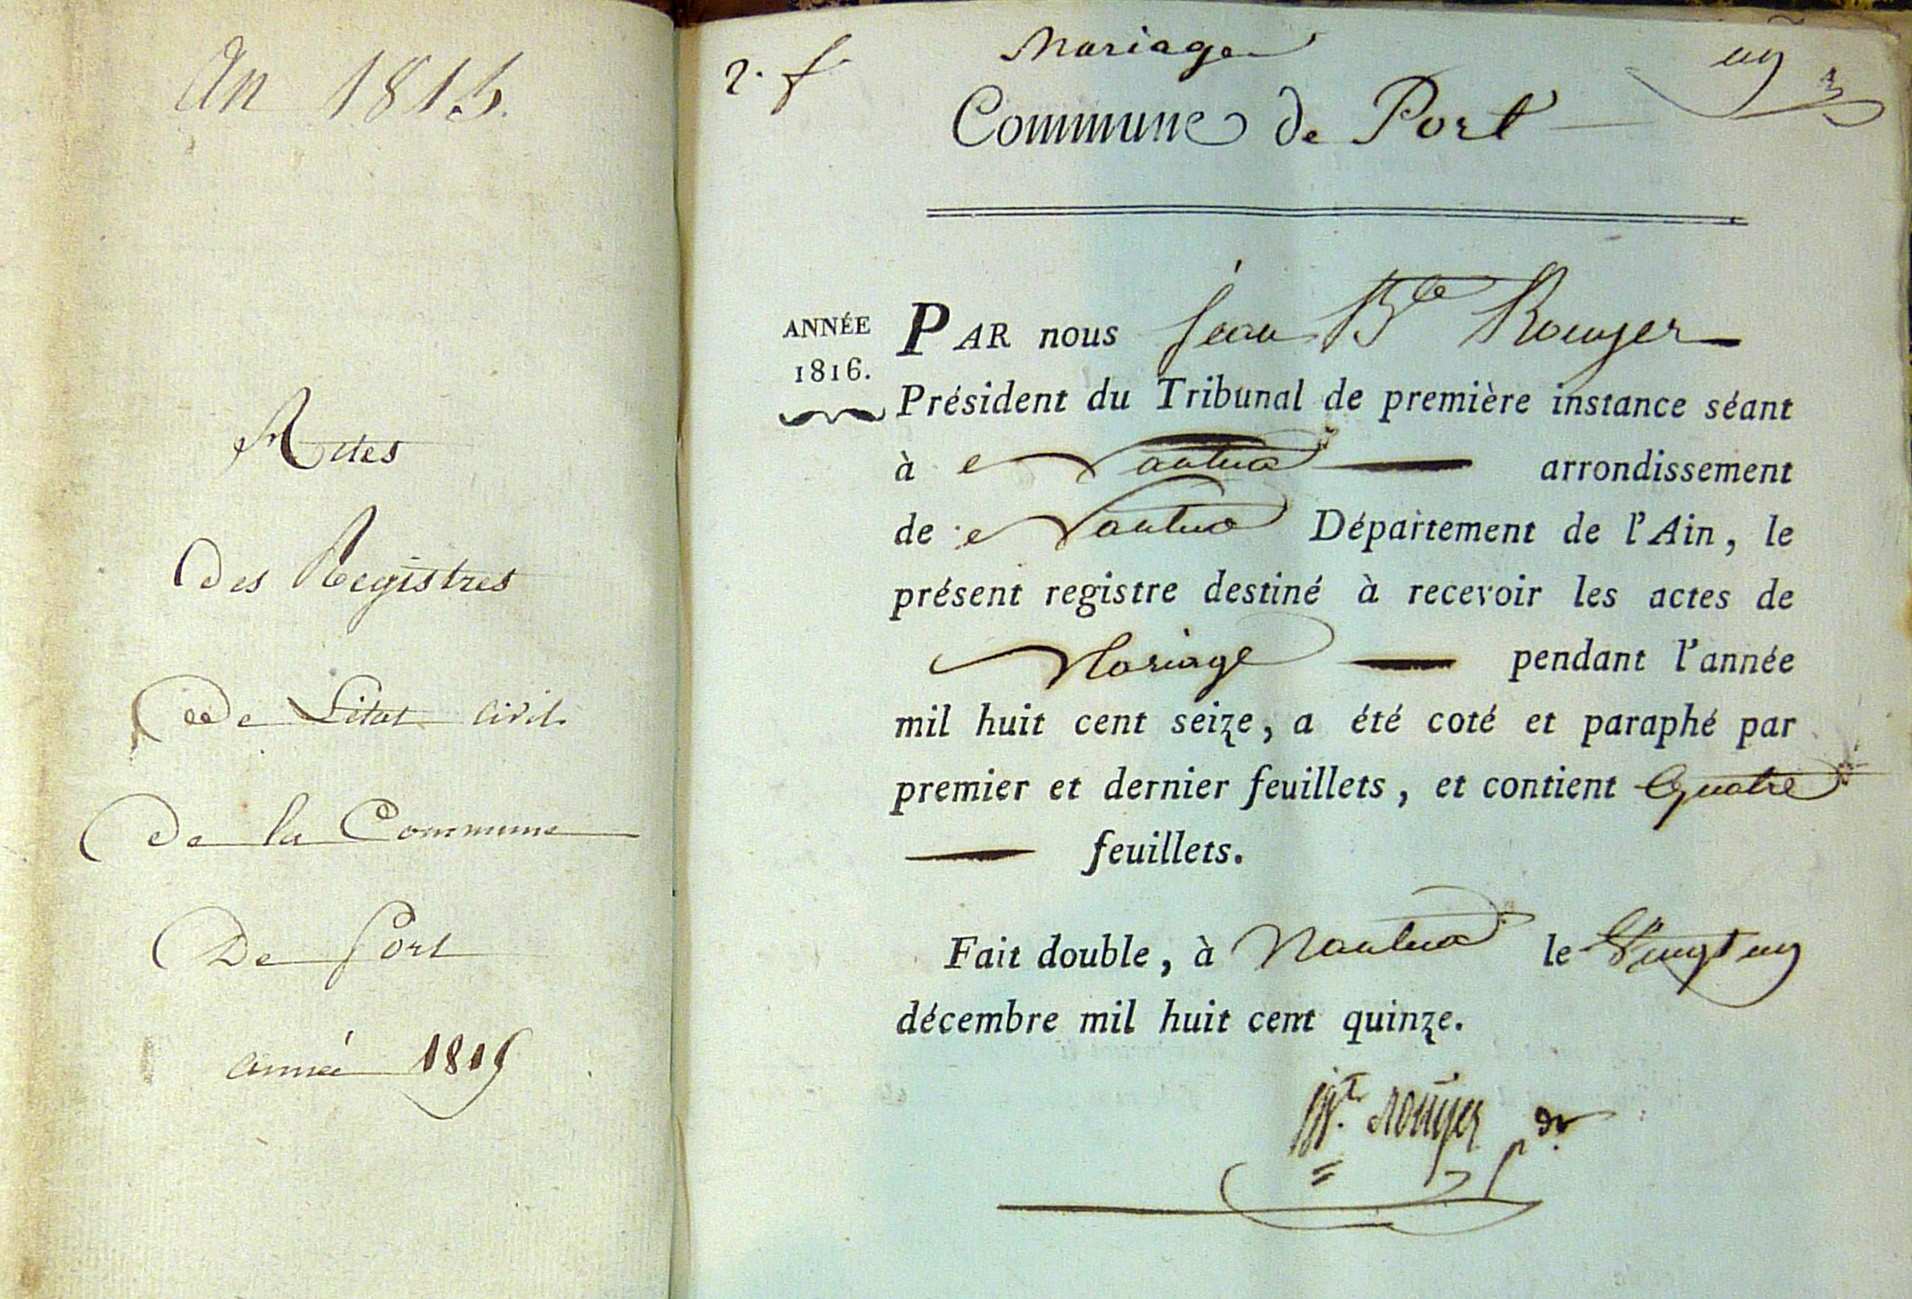 An 1815.
Actes
des Registres
De Létat civil
De la Commune
De Port
année 1815
2. f.
Mariage
un
Commune de Port
ANNÉE
1816.
PAR nous Jean Bte Rouyer
Président du Tribunal de première instance séant
à Nantua arrondissement
de Nantua Département de l'Ain, le
présent registre destiné à recevoir les actes de
Mariage pendant l'année
mil huit cent seize, a été coté et paraphé par
premier et dernier feuillets, et contient quatre
feuillets.
Fait double, à Nantua le vingt un
décembre mil huit cent quinze.
Bte. Rouyer